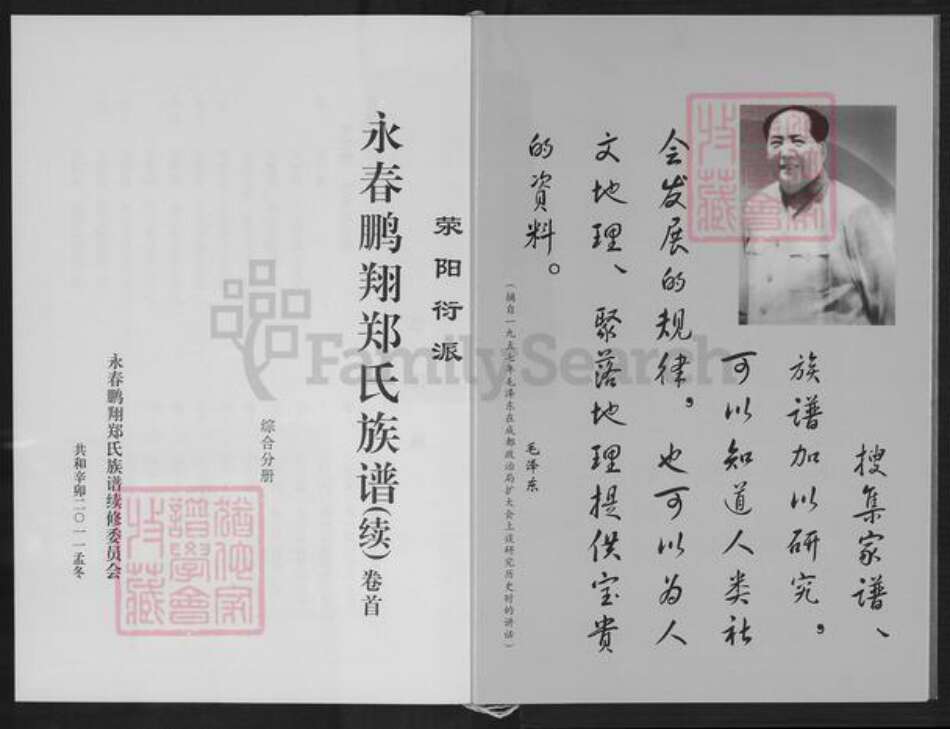 搜集家谱、
族谱加以研究，
可以知道人类社
会发展的规律，也可以为人
文地理、聚落地理提供宝贵
的資料。
毛泽东
（摘自一九五七年毛泽东在成都政治局扩大会上谈研究历史时的讲话）
荥阳衍派
永春鹏翔郑氏族谱(续)卷首
综合分册
永春鹏翔郑氏族谱续修委员会
共和辛卯二〇一一孟冬
猶他家
譜學會
收藏
猶他家
譜學會
收藏
FamilySearch